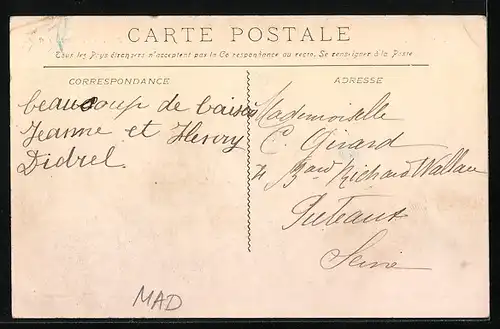 CARTE POSTALE
Tous les Pays étrangers n'acceptent pas la Correspondance au recto. Se renseigner à la Poste
CORRESPONDANCE
beaucoup de baisers
Jeanne et Henry
Didrel.
ADRESSE
Mademoiselle
C. Girard
Bard Richard Wallace
Puteaux
Seine
MAD